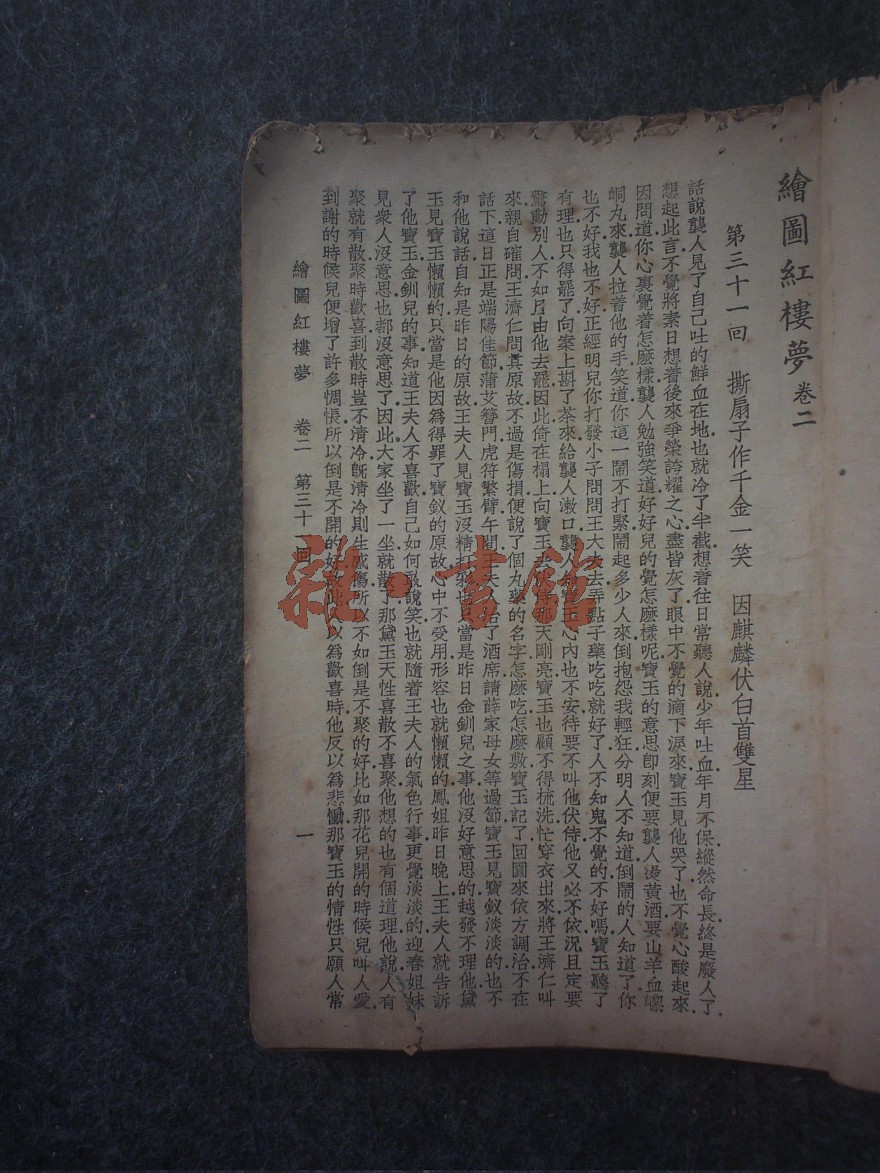 繪圖紅樓夢 卷二
第三十一回 撕扇子作千金一笑 因麒麟伏白首雙星
話說襲人見了自己吐的鮮血在地也就冷了半截想着往日常聽人說少年吐血年月不保縱然命長終是廢人了
想起此言不覺將素日想着後來爭榮誇耀之心盡皆灰了眼中不覺的滴下淚來寶玉見他哭了也不覺心酸起來
因問道你心裏覺着怎麼樣襲人勉強笑道好好兒的覺怎麼樣呢寶玉的意思即刻便要襲人燙黃酒要山羊血㠍
峒丸來襲人拉着他的手笑道你這一鬧不打緊鬧起多少人來倒抱怨我輕狂分明人不知道倒鬧的人知道了你
也不好我也不好正經明兒你打發小子問問王大夫去弄點子藥吃吃就好了人不知鬼不覺的不好嗎寶玉聽了
有理也只得罷了向案上斟了茶來給襲人漱口襲人知寶玉心內也不安待要不叫他伏侍他又必不依況且定要
驚動別人不如且由他去罷因此倚在榻上向寶玉天剛亮寶玉也顧不得梳洗忙穿衣出來將王濟仁叫
來親自確問王濟仁問其原故不過是傷損便說了個丸藥的名字怎麼吃怎麼敷寶玉記了回園來依方調治不在
話下這日正是端陽佳節蒲艾簪門虎符繫臂午間王夫人治了酒席請薛家母女等過節寶玉見寶釵淡淡的也不
和他說話自知是昨日的原故王夫人見寶玉沒精打彩也只當是昨日金釧兒之事他沒好意思的越發不理他黛
玉見寶玉懶懶的只當是他因為得罪了寶釵的原故心中不受用形容也就懶懶的鳳姐昨日晚上王夫人就告訴
了他寶玉金釧兒的事知道王夫人不喜歡自己如何敢說笑也就隨着王夫人的氣色行事更覺淡淡的迎春姐妹
見衆人沒意思也都沒意思了因此大家坐了一坐就散了那黛玉天性喜散不喜聚他想的也有個道理他說人有
聚就有散聚時歡喜到散時豈不清冷旣清冷則生感傷所以不如倒是不聚的好比如那花兒開的時候兒叫人愛
到謝的時候兒便增了許多惆悵所以倒是不開的好故此以爲歡喜時他反以爲悲慟那寶玉的情性只願人常
繪圖紅樓夢 卷二 第三十一回 一
雜·書館